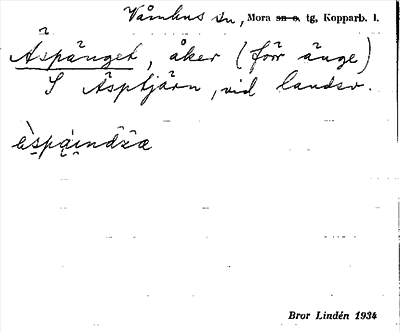 Våmhus sn, Mora sn o. tg, Kopparb. l.
Äspänget, åker (förr änge)
S Äsptjärn, vid landsv.
Bror Lindén 1934